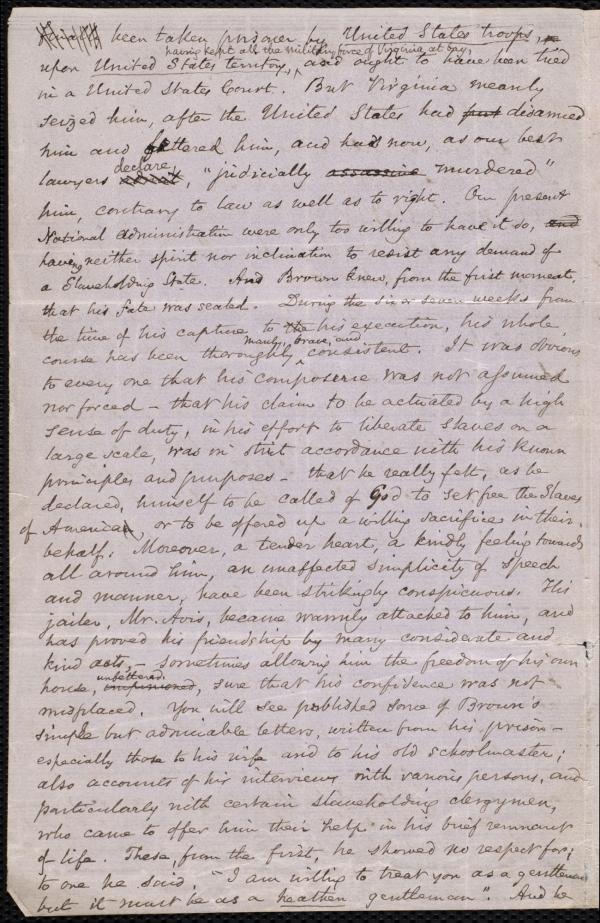 been taken prisoner by United States troops,
having kept all the military force of Virginia at bay,
upon United States territory, and ought to have been tried
in a United States Court. But Virginia meanly
seized him, after the United States had put disarmed
him and fettered him, and has now, as our best
declare,
lawyers, "judicially assassine murdered"
him, contrary to law as well as to right. Our present
National administration were only too willing to have it so, and
having neither spirit nor inclination to resist any demand of
a Slaveholding State. And Brown knew, from the first moment,
that his fate was sealed. During the six or seven weeks from
the time of his capture to the his execution, his whole
manly, brave, and
course has been thoroughly consistent. It was obvious
to every one that his composure was not assumed
nor forced – that his claim to be actuated by a high
sense of duty, in his effort to liberate slaves on a
large scale, was in strict accordance with his known
principles and purposes – that he really felt, as he
declared, himself to be called of God to set free the Slaves
of America, or to be offered up a willing sacrifice in their
behalf. Moreover, a tender heart, a kindly feeling towards
all around him, an unaffected simplicity of speech
and manner, have been strikingly conspicuous. His
jailer, Mr. Avis, became warmly attached to him, and
has proved his friendship by many considerate and
kind acts, – sometimes allowing him the freedom of his own
unfettered,
house, sure that his confidence was not
misplaced. You will see published some of Brown's
simple but admirable letters, written from his prison –
especially those to his wife and to his old schoolmaster;
also accounts of his interviews with various persons, and
particularly with certain slaveholding clergymen,
who came to offer him their help in his brief remnant
of life. These, from the first, he showed no respect for;
to one he said, "I am willing to treat you as a gentleman
but it must be as a heathen gentleman". And he